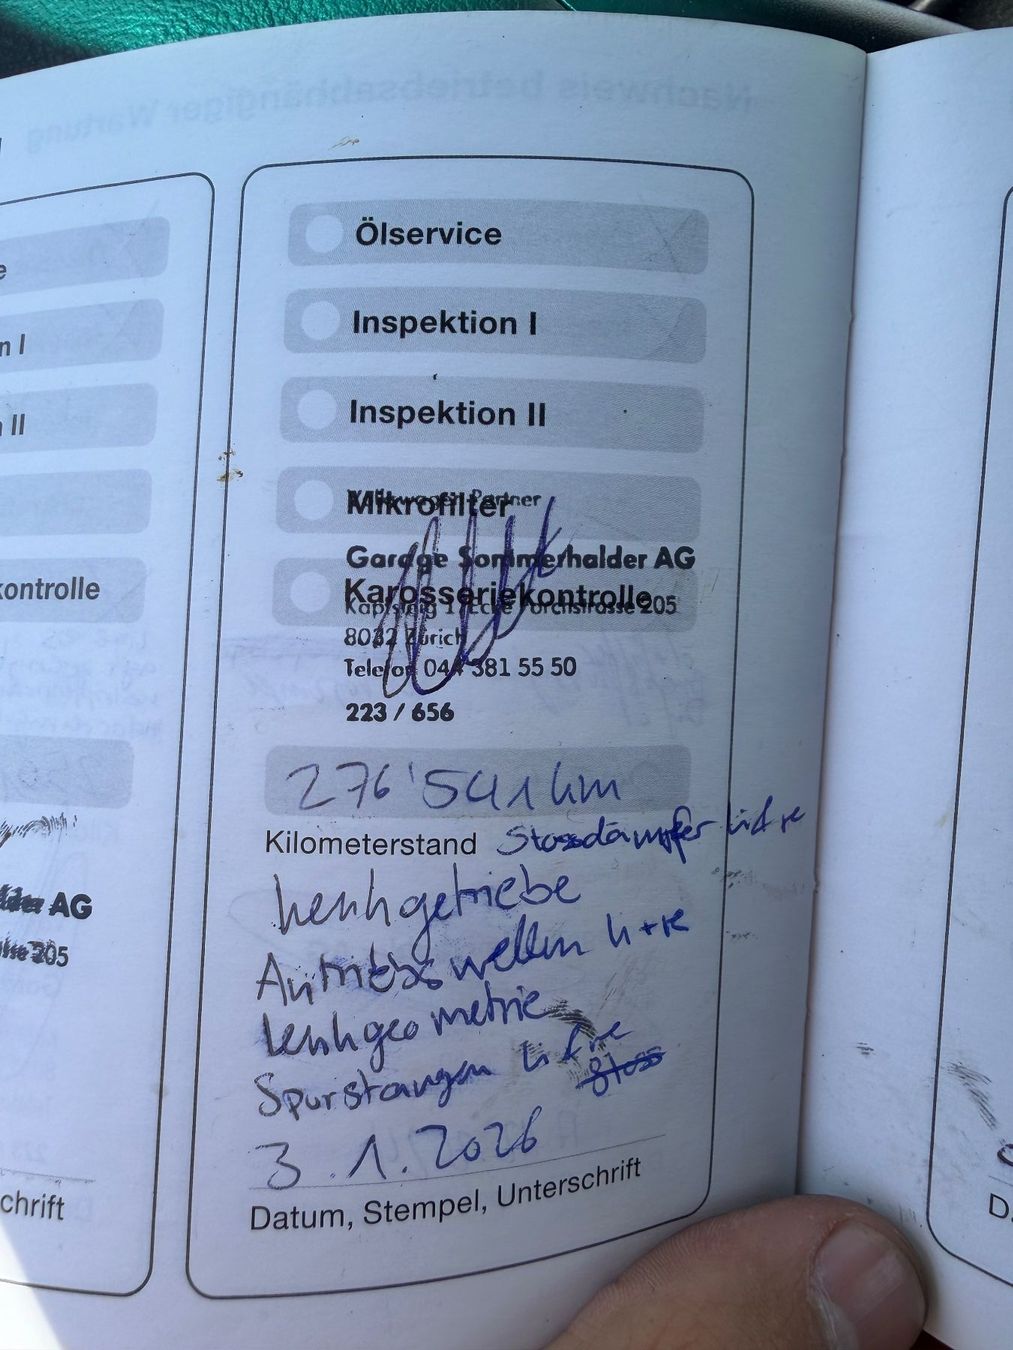 Nachweis betriebsabhängiger Wartung
Ölservice
Inspektion I
Inspektion II
Mikrofilter
Volkswagen Partner
Garage Sommerhalder AG
Karosseriekontrolle
205
8032 Zürich
Telefon 044 381 55 50
223 / 656
276'541 km
Kilometerstand Stossdämpfer li + re
Lenkgetriebe
Antriebswellen li + re
Lenkgeometrie
Spurstangen li + re
Stoss
3.1.2026
Datum, Stempel, Unterschrift
n I
II
kontrolle
AG
205
chrift